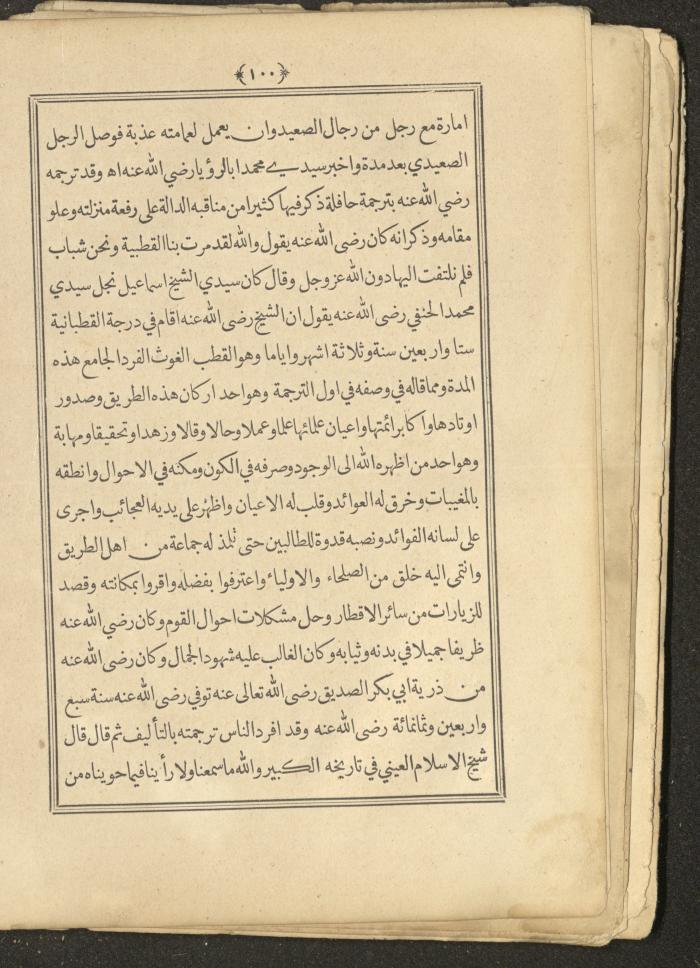 ﴿١٠٠﴾
امارة مع رجل من رجال الصعيد وان يعمل لعمامته عذبة فوصل الرجل
الصعيدي بعد مدة واخبر سيدي محمدا بالرؤيا رضي الله عنه اه وقد ترجمه
رضي الله عنه بترجمة حافلة ذكر فيها كثيرا من مناقبه الدالة على رفعة منزلته وعلو
مقامه وذكر انه كان رضى الله عنه يقول والله لقد مرت بنا القطبية ونحن شباب
فلم نلتفت اليها دون الله عز وجل وقال كان سيدي الشيخ اسماعيل نجل سيدي
محمد الحنفي رضى الله عنه يقول ان الشيخ رضى الله عنه اقام في درجة القطبانية
ستا واربعين سنة وثلاثة اشهر واياما وهو القطب الغوث الفرد الجامع هذه
المدة ومما قاله في وصفه في اول الترجمة وهو احد اركان هذه الطريق وصدور
اوتادها واكابر ائمتها واعيان علمائها علما وعملا وحالا وقالا وزهدا وتحقيقا ومهابة
وهو احد من اظهره الله الى الوجود وصرفه في الكون ومكنه في الاحوال وانطقه
بالمغيبات وخرق له العوائد وقلب له الاعيان واظهر على يديه العجائب واجرى
على لسانه الفوائد ونصبه قدوة للطالبين حتى تلمذ له جماعة من اهل الطريق
وانتمى اليه خلق من الصلحاء والاولياء واعترفوا بفضله واقروا بمكانته وقصد
للزيارات من سائر الاقطار وحل مشكلات احوال القوم وكان رضي الله عنه
ظريفا جميلا في بدنه وثيابه وكان الغالب عليه شهود الجمال وكان رضى الله عنه
من ذرية ابي بكر الصديق رضى الله تعالى عنه توفي رضى الله عنه سنة سبع
واربعين وثمانمائة رضى الله عنه وقد افرد الناس ترجمته بالتأليف ثم قال قال
شيخ الاسلام العيني في تاريخه الكبير والله ما سمعنا ولا رأينا فيما حويناه من